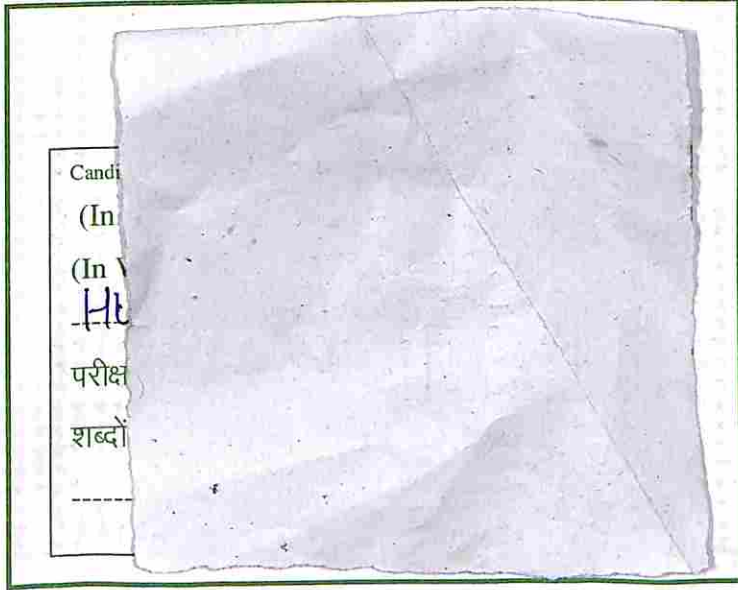 Candi
(In
(In
परीक्ष
शब्दों